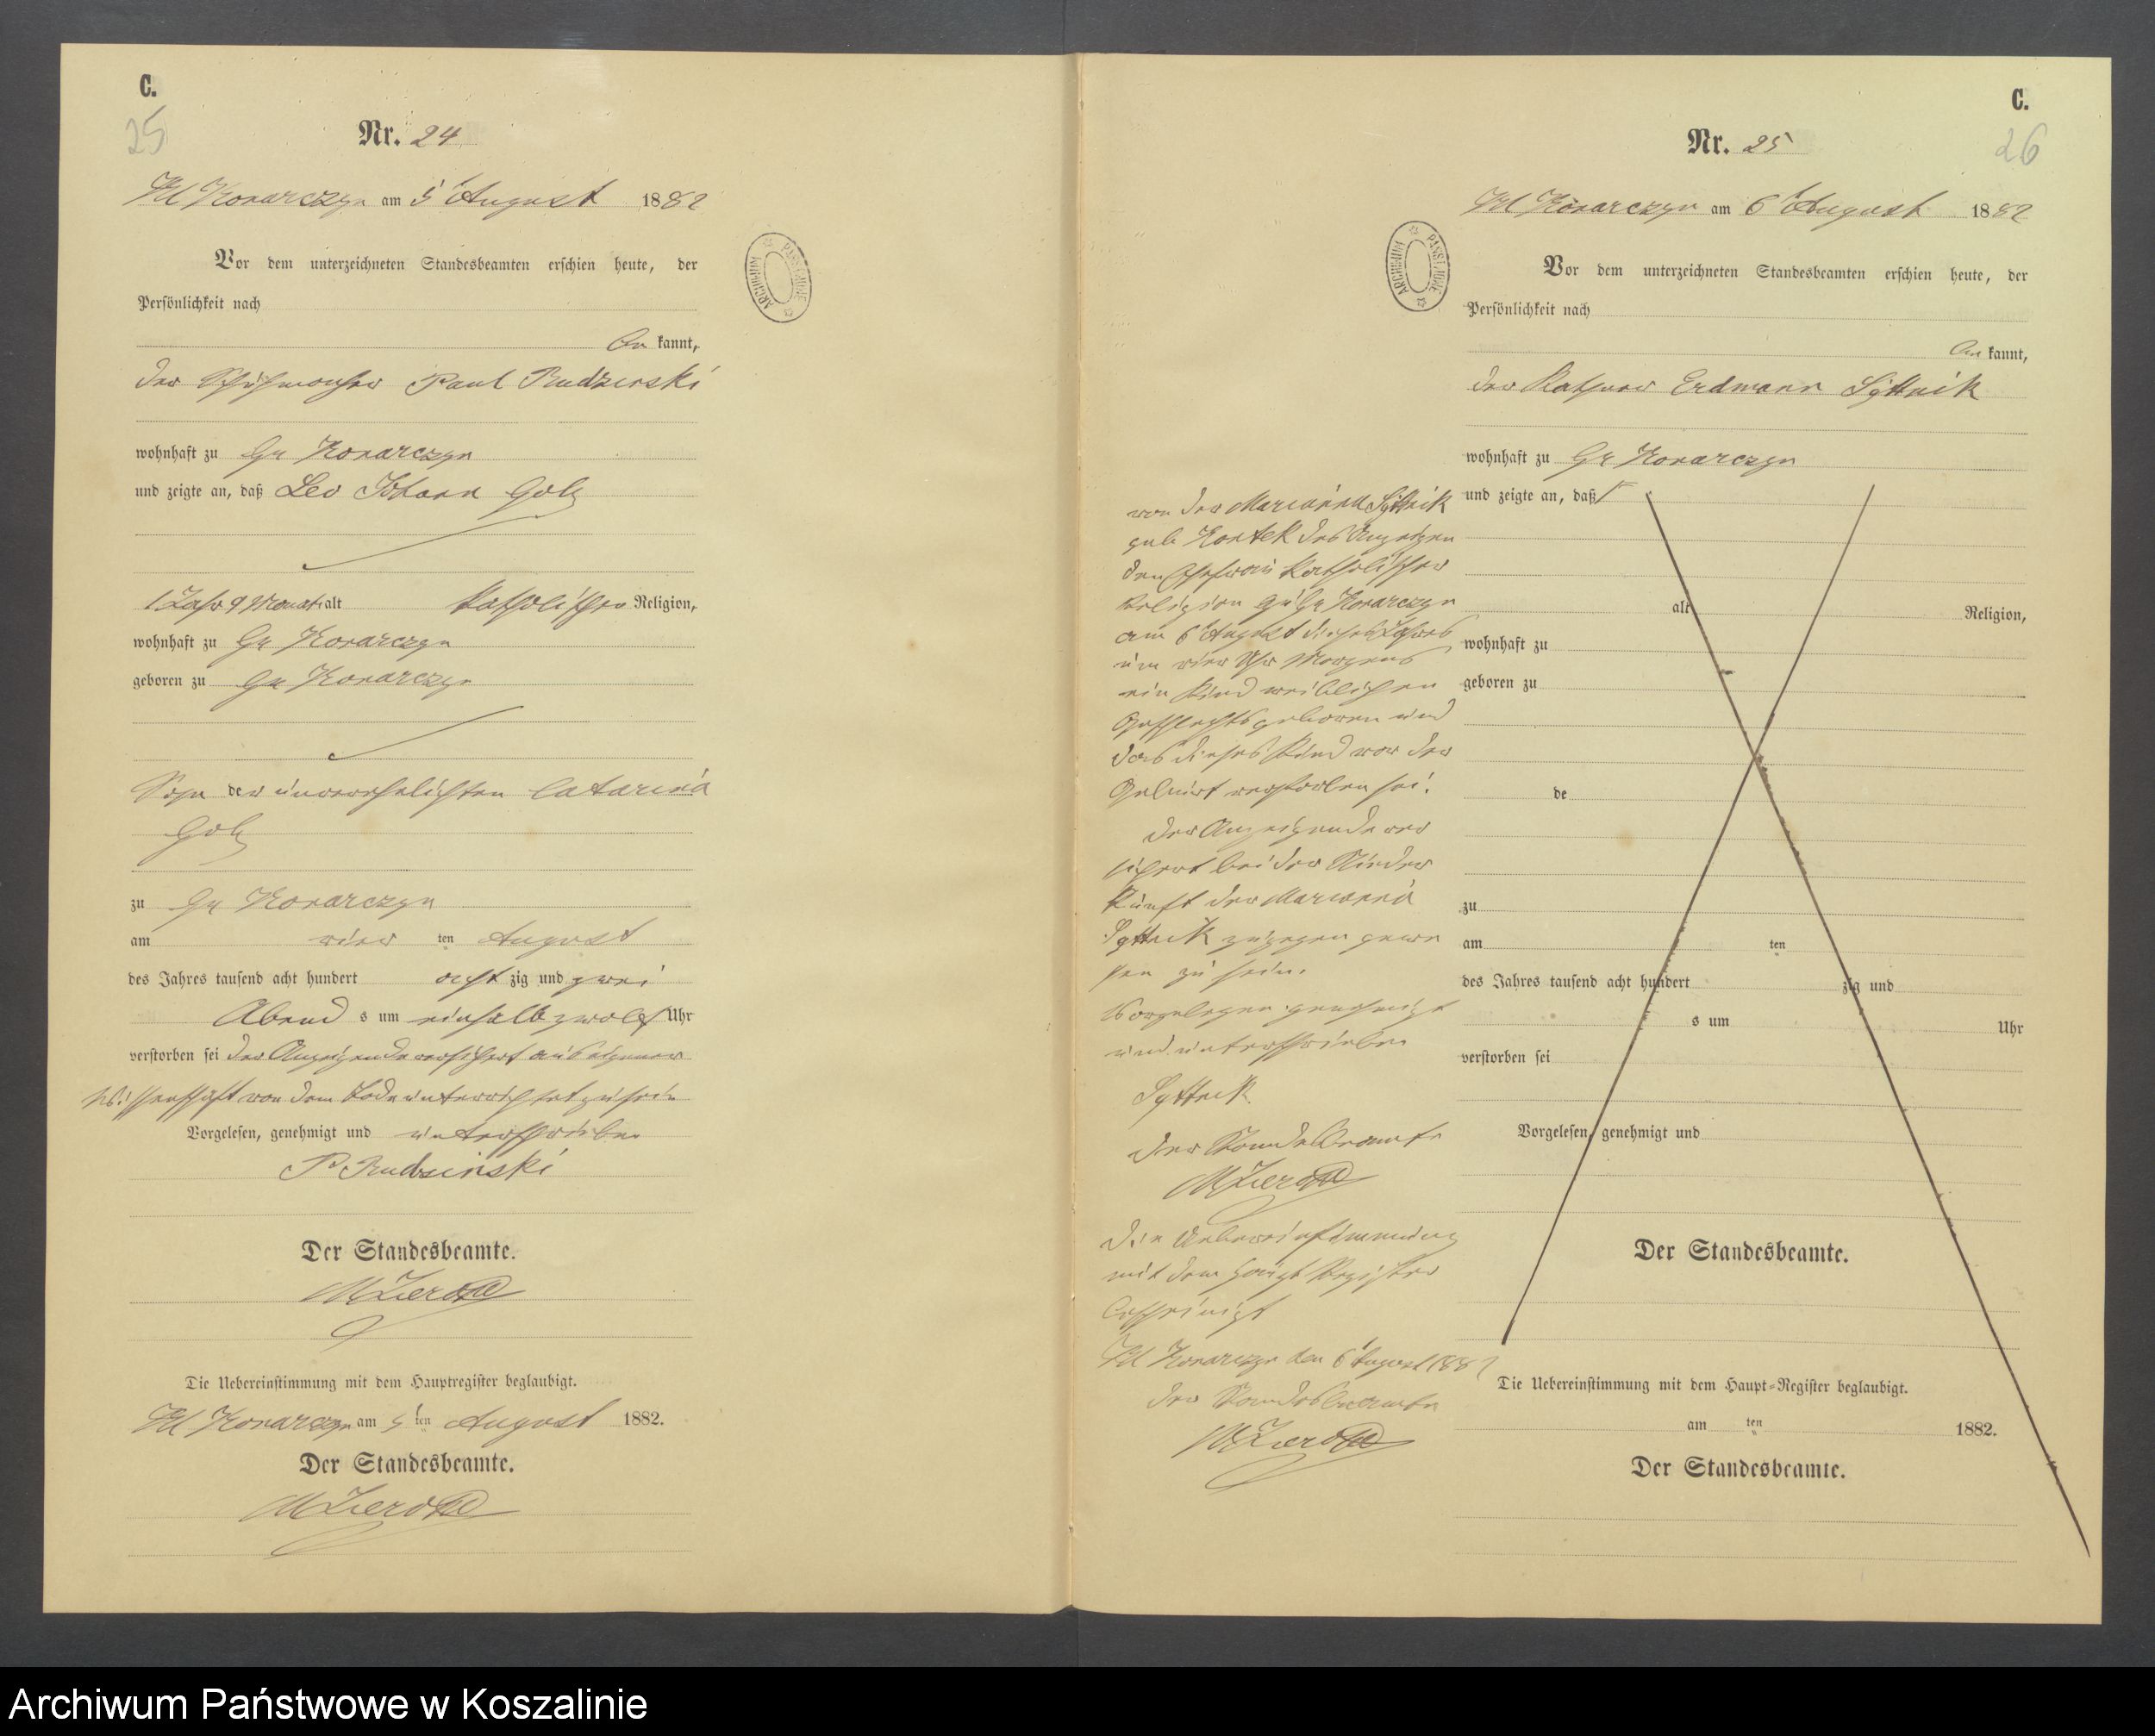 C.
25
Nr. 24
Kl Konarczyn am 5t August 1882
Vor dem unterzeichneten Standesbeamten erschien heute, der
Persönlichkeit nach
be kannt,
der Paul Rudzinski
wohnhaft zu Gr Konarczyn
und zeigte an, daß Leo Johann Golz
1 Jahr 9 Monat alt katholischer Religion,
wohnhaft zu Gr Konarczyn
geboren zu Gr Konarczyn
Sohn der unverehelichten Catarina
Golz
zu Gr Konarczyn
am vier ten August
des Jahres tausend acht hundert acht zig und zwei
Abend s um einhalb zwölf Uhr
verstorben sei der Anzeigende versichert aus eigener
Wissenschaft von dem Tode unterrichtet zu sein
Vorgelesen, genehmigt und unterschrieben
P Rudzinski
Der Standesbeamte.
Die Uebereinstimmung mit dem Hauptregister beglaubigt.
Kl Konarczyn am 5 ten August 1882.
Der Standesbeamte.
C.
26
Nr. 25
Kl Konarczyn am 6t August 1882
Vor dem unterzeichneten Standesbeamten erschien heute, der
Persönlichkeit nach
be kannt,
der Kathner Erdmann Syttnik
wohnhaft zu Gr Konarczyn
und zeigte an, daß
alt Religion,
wohnhaft zu
geboren zu
de
zu
am ten
des Jahres tausend acht hundert zig und
s um Uhr
verstorben sei
Vorgelesen, genehmigt und
Der Standesbeamte.
Die Uebereinstimmung mit dem Haupt-Register beglaubigt.
am ten 1882.
Der Standesbeamte.
von der Marianna Syttnik
geb Kontek des Anzeigen
den Ehefrau katholischer
Religion zu Gr Konarczyn
am 6t August dieses Jahres
um vier Uhr Morgens
ein Kind weiblichen
Geschlechts geboren und
das dieses Kind vor der
Geburt verstorben sei.
Der Anzeigende ver
sichert bei der Nieder
kunft der Marianna
Syttnik zugegen gewe
sen zu sein.
Vorgelesen genehmigt
und unterschrieben
Syttnik
Der Standesbeamte
Die Uebereinstimmung
mit dem Haupt Register
bescheinigt
Kl Konarczyn den 6t August 1882
Der Standesbeamte
ARCHIWUM PAŃSTWOWE
ARCHIWUM PAŃSTWOWE
Archiwum Państwowe w Koszalinie